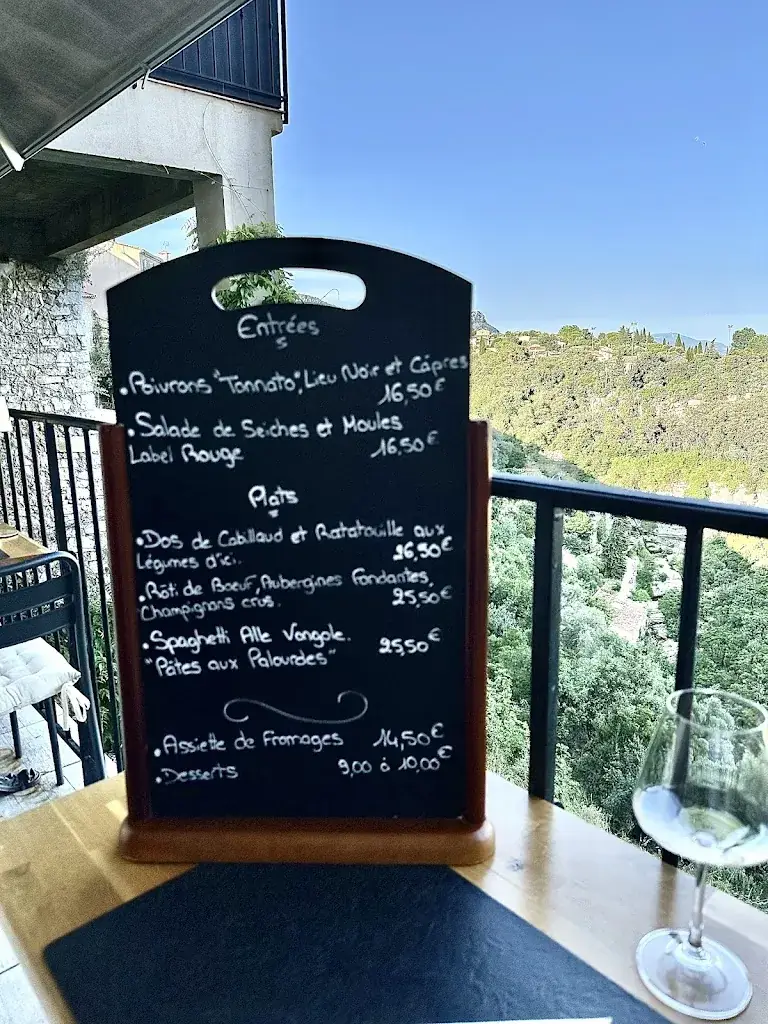 Entrées
• Poivrons "Tonnato", Lieu Noir et Câpres
16,50€
• Salade de Seiches et Moules
Label Rouge 16,50€
Plats
• Dos de Cabillaud et Ratatouille aux
Légumes d'ici. 26,50€
• Rôti de Boeuf, Aubergines Fondantes,
Champignons crus. 25,50€
• Spaghetti Alle Vongole. 25,50€
"Pâtes aux Palourdes"
• Assiette de Fromages 14,50€
• Desserts 9,00 à 10,00€